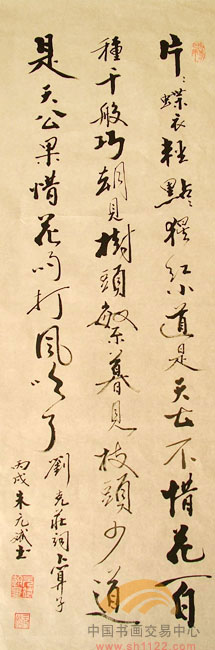 片ミ蝶衣輕點ミ猩紅小道是天公不惜花百
種千般巧朝見樹頭繁暮見枝頭少道
是天公果惜花雨打風吹了
劉克莊詞卜算子
丙戌朱元斌書
中国书画交易中心
www.sh1122.com